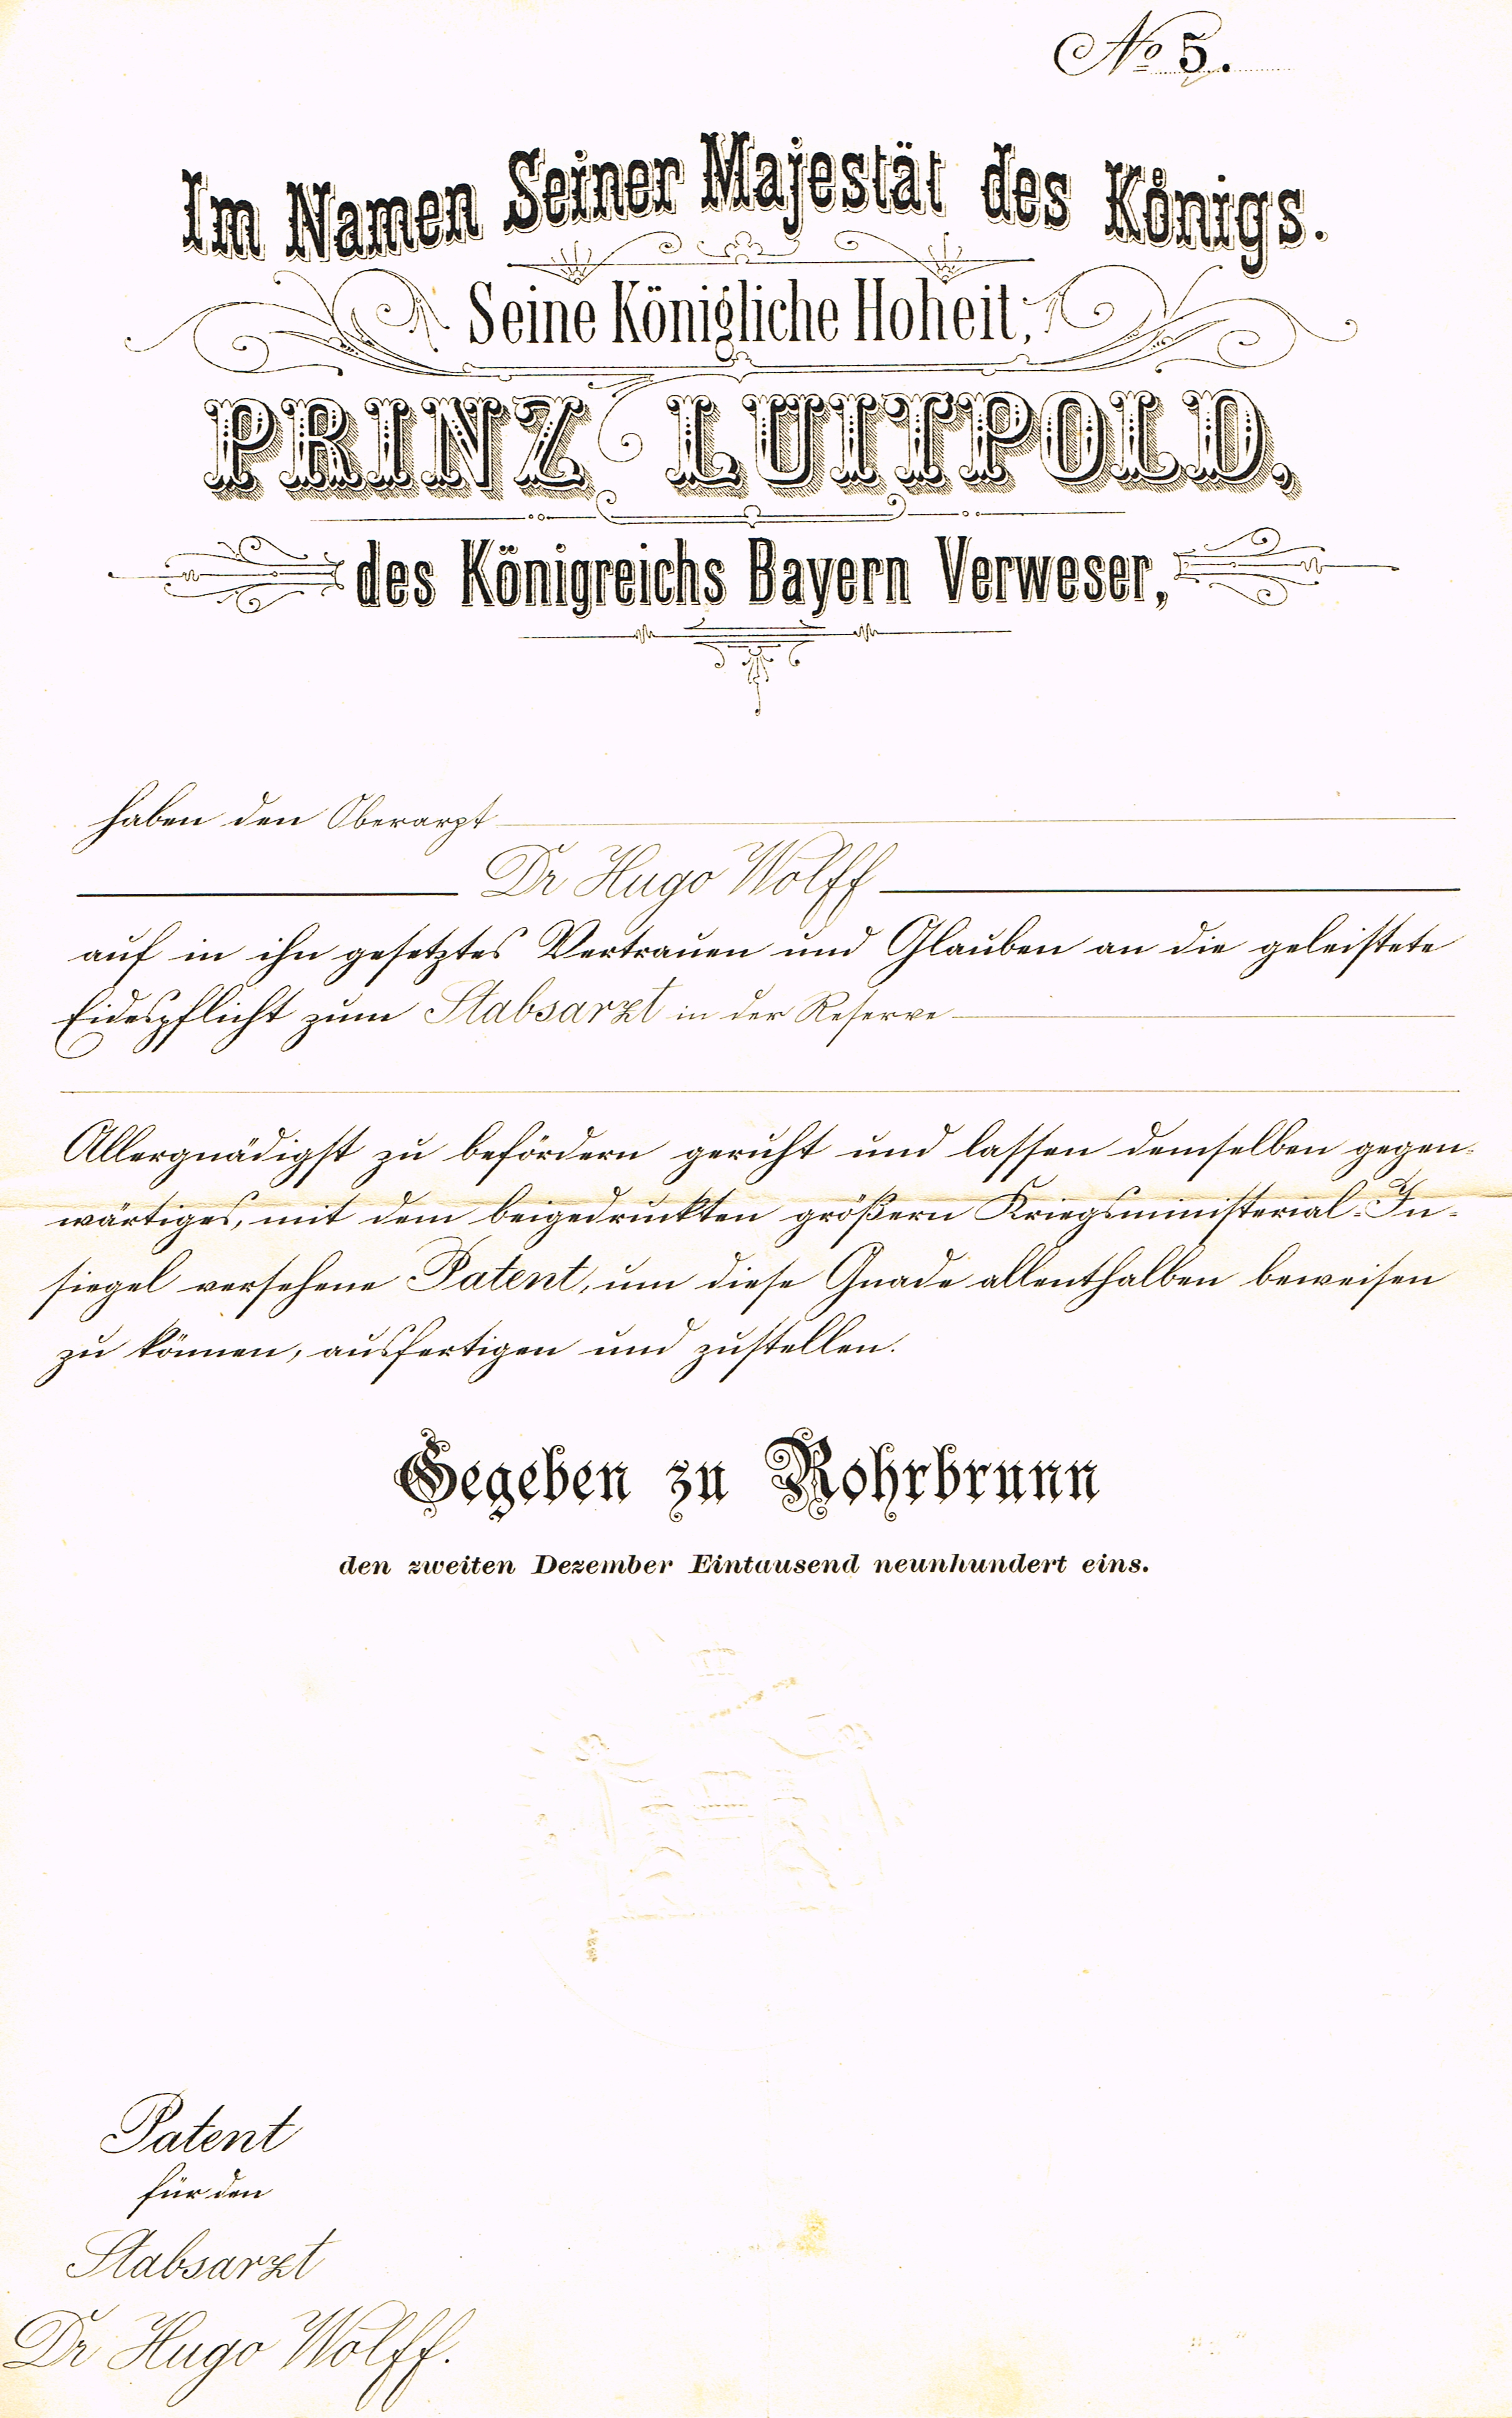 No 5.
Im Namen Seiner Majestät des Königs.
Seine Königliche Hoheit,
PRINZ LUITPOLD,
des Königreichs Bayern Verweser,
haben den Oberarzt
Dr Hugo Wolff
auf in ihn gesetztes Vertrauen und Glauben an die geleistete
Eidespflicht zum Stabsarzt in der Reserve
Allergnädigst zu befördern geruht und lassen demselben gegen-
wärtiges, mit dem beigedruckten größern Kriegsministerial-In-
siegel versehene Patent, um diese Gnade allenthalben beweisen
zu können, ausfertigen und zustellen.
Gegeben zu Rohrbrunn
den zweiten Dezember Eintausend neunhundert eins.
Patent
für den
Stabsarzt
Dr Hugo Wolff.